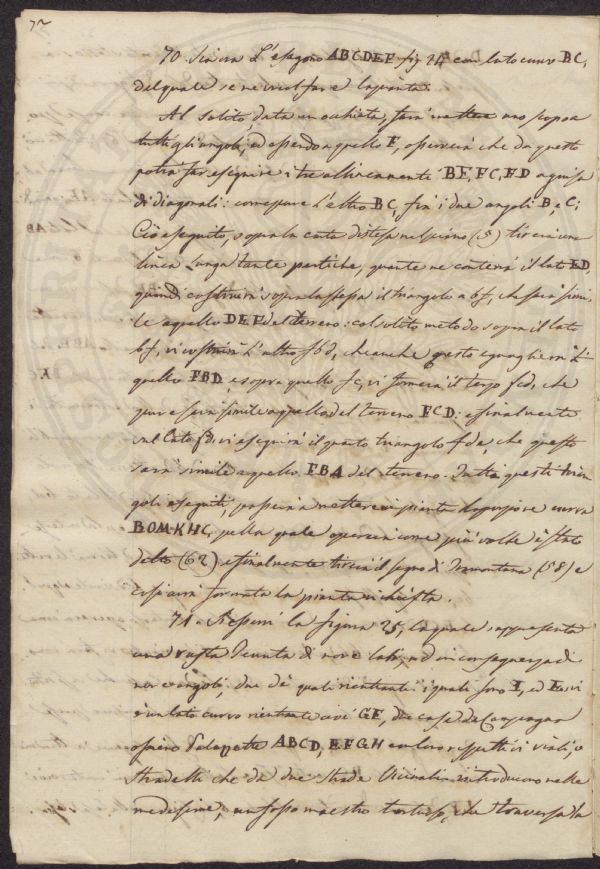 70. Siavi l'esagono ABCDEF fig. 24 con lato curvo BC,
del quale se ne vuol fare la pianta.
Al solito, data un occhiata, farà mettere uno scopo a
tutti gli angoli, ed essendo a quello F, osserverà che da questi
potrà far eseguire i tre allineamenti BF, FC, FD a guisa
di diagonali: come pure l'altro BC, fra i due angoli B, e C;
Ciò eseguito, sopra la carta distesa nel piano (15) tirerà una
linea lunga tante pertiche, quante ne conterrà il lato FD,
quindi costruirà sopra la stessa il triangolo a bf, che sarà simi,
le a quello DEF del terreno: col solito metodo sopra il lato
bf, vi costruirà l'altro fbd, che anche questo eguaglierà il
quello FBD e sopra quello fc, vi formerà il terzo fcd, che
pure sarà simile a quello del terreno FCD: e finalmente
sul lato fd, vi eseguirà il quarto triangolo fde, che questo
sarà simile a quello FBA del terreno. Tutti questi trian
goli eseguiti, passerà a mettere in pianta la porzione curva
BOMKHC, nella quale opererà come più volte è stato
detto (62) e finalmente tirerà il segno di Tramontana (58) e
così avrà formata la pianta richiesta.
71. Osservi la figura 25, la quale rappresenta
una vasta Tenuta di nove lati, ed in conseguenza di
nove angoli, due de quali rientranti: i quali sono I, ed E, vi
è un lato curvo rientrante ivi GF, due case da Campagna
ossieno Palazzette ABCD, EFGH con loro rispettivi viali, o
stradelli che da due strade Vicinali introducono nelle
medesime, un fosso maestro tortuoso, che traversa la